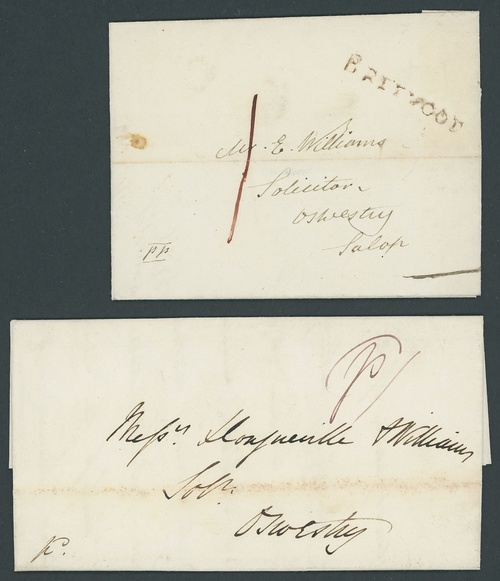 BRITWOOD
1
Mr. E. Williams
Solicitor
Oswestry
Salop
pp
p/
Messrs. Longueville & Williams
Solrs.
Oswestry
p.